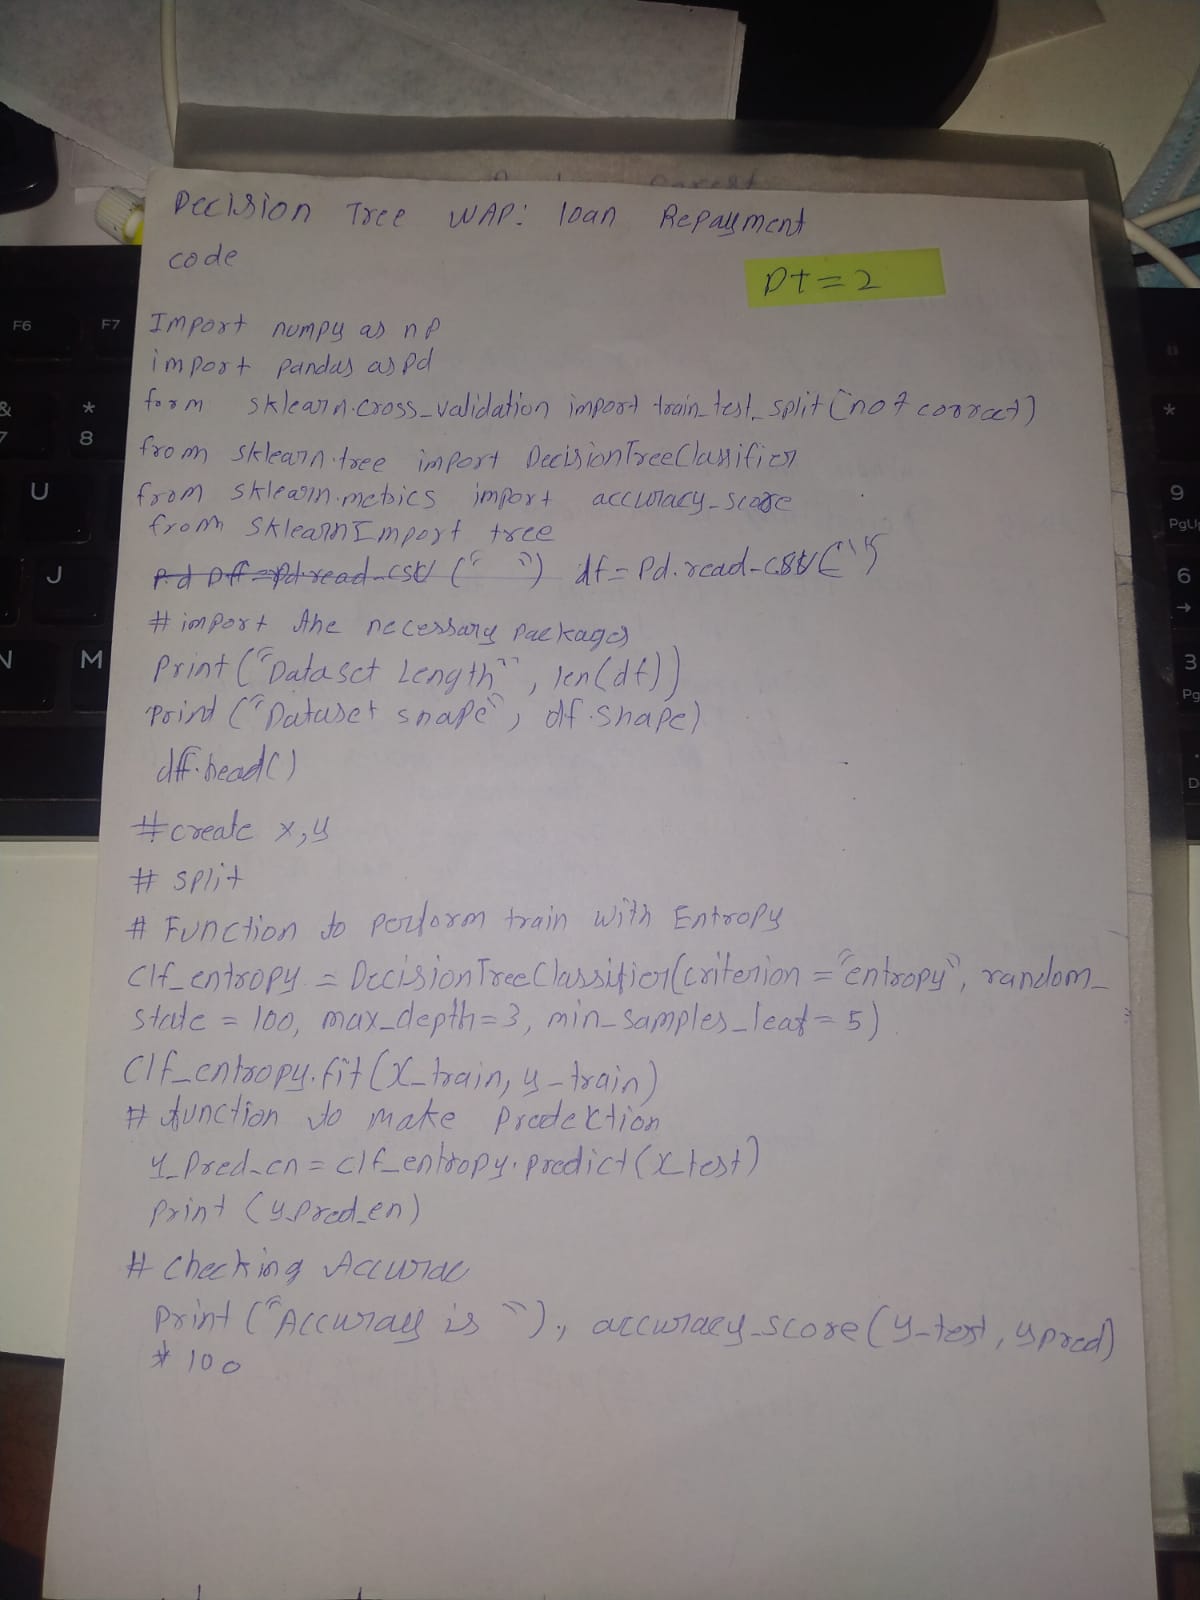 Decision Tree WAP: loan Repayment
code
DT = 2
Import numpy as np
import pandas as pd
form sklearn.cross_validation import train_test_split (not correct)
from sklearn.tree import DecisionTreeClassifier
from sklearn.metrics import accuracy_score
from sklearn Import tree
df = Pd.read_csv("")
# import the necessary packages
Print ("Dataset Length", len(df))
Print ("Dataset snape", df.shape)
dff.head()
#create x,y
# split
# Function to perform train with Entropy
clf_entropy = DecisionTreeClassifier(criterion = "entropy", random_
state = 100, max_depth=3, min_samples_leaf = 5)
Clf_entropy.fit(X_train, y_train)
# function to make Predektion
y_Pred_en = clf_entropy.predict(X_test)
Print (y_pred_en)
# checking Accurac
Print ("Accuracy is "), accuracy_score(y_test, y pred)
* 100
F6
F7
&
7
*
8
U
J
N
M
*
9
PgU
6
→
3
Pg
D